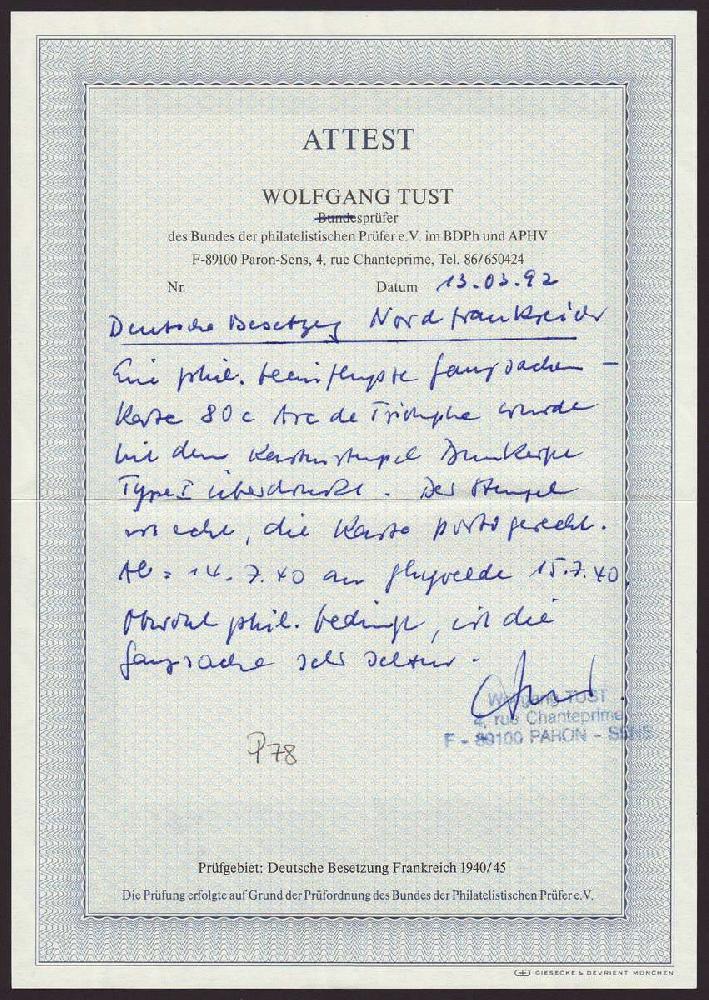 ATTEST
WOLFGANG TUST
Bundesprüfer
des Bundes der philatelistischen Prüfer e.V. im BDPh und APHV
F-89100 Paron-Sens, 4, rue Chanteprime, Tel. 86/650424
Nr. Datum 13.03.92
Deutsche Besetzung Nordfrankreich
Eine phil. beeinflusste Ganzsachen-
Karte 80c Arc de Triomphe wurde
mit dem Kastenstempel Dunkerque
Type I überdruckt. Der Stempel
ist echt, die Karte portogerecht.
Ab: 14.7.40 an 15.7.40
Obwohl phil. bedingt, ist die
Ganzsache sehr selten.
Wolfgang TUST
4, rue Chanteprime
F - 89100 PARON - SENS
P78
Prüfgebiet: Deutsche Besetzung Frankreich 1940/45
Die Prüfung erfolgte auf Grund der Prüfordnung des Bundes der Philatelistischen Prüfer e.V.
GIESECKE & DEVRIENT MÜNCHEN